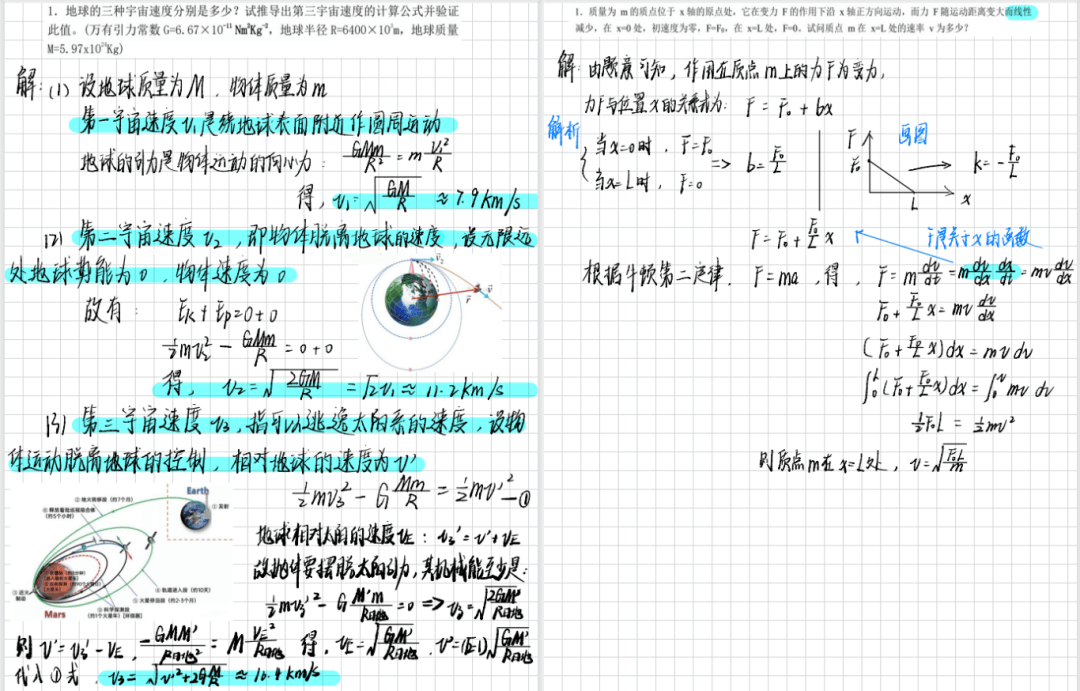 1. 地球的三种宇宙速度分别是多少？试推导出第三宇宙速度的计算公式并验证
此值。(万有引力常数 G=6.67×10⁻¹¹ Nm²Kg⁻², 地球半径 R=6400×10³m, 地球质量
M=5.97x10²⁴Kg)
解: (1) 设地球质量为M, 物体质量为m
第一宇宙速度v₁是绕地球表面附近作圆周运动
地球的引力是物体运动的向心力: GMm/R² = m v₁²/R
得, v₁=√(GM/R) ≈7.9km/s
(2) 第二宇宙速度v₂, 即物体脱离地球的速度, 设无限远
处地球势能为0, 物体速度为0
故有: Ek+Ep=0+0
½mv₂² - GMm/R = 0+0
得, v₂=√(2GM/R) = √2v₁ ≈ 11.2km/s
(3) 第三宇宙速度v₃, 指可以逃逸太阳系的速度, 设物
体运动脱离地球的控制, 相对地球的速度为v'
½mv₃² - G Mm/R = ½mv'² —①
地球相对太阳的速度vE: v₃'=v'+vE
故物体要摆脱太阳引力, 其机械能至少是:
½mv₃'² - G M'm/R日地 =0 => v₃'=√(2GM'/R日地)
则 v'=v₃'-vE, GMM'/R日地² = M vE²/R日地 得, vE=√(GM'/R日地), v'=(√2-1)√(GM'/R日地)
代入①式, v₃=√(v'²+2GM/R) ≈ 16.4km/s
Earth
① 发射
Mars
1. 质量为 m 的质点位于 x 轴的原点处，它在变力 F 的作用下沿 x 轴正方向运动，而力 F 随运动距离变大而线性
减少，在 x=0 处，初速度为零，F=F₀，在 x=L 处，F=0。试问质点 m 在 x=L 处的速率 v 为多少？
解: 由题意可知, 作用在质点m上的力F为变力,
力F与位置x的关系式为: F=F₀+bx
解析
当x=0时, F=F₀
当x=L时, F=0
=> b=F₀/L
画图
F
F₀
L
x
k=-F₀/L
F=F₀+F₀/L x
F得关于x的函数
根据牛顿第二定律, F=ma, 得, F=m dv/dt = m dv/dx dx/dt = mv dv/dx
F₀+F₀/L x = mv dv/dx
(F₀+F₀/L x)dx = mv dv
∫₀ᴸ(F₀+F₀/L x)dx = ∫₀ᵛ mv dv
½F₀L = ½mv²
则质点m在x=L处, v=√(F₀L/m)